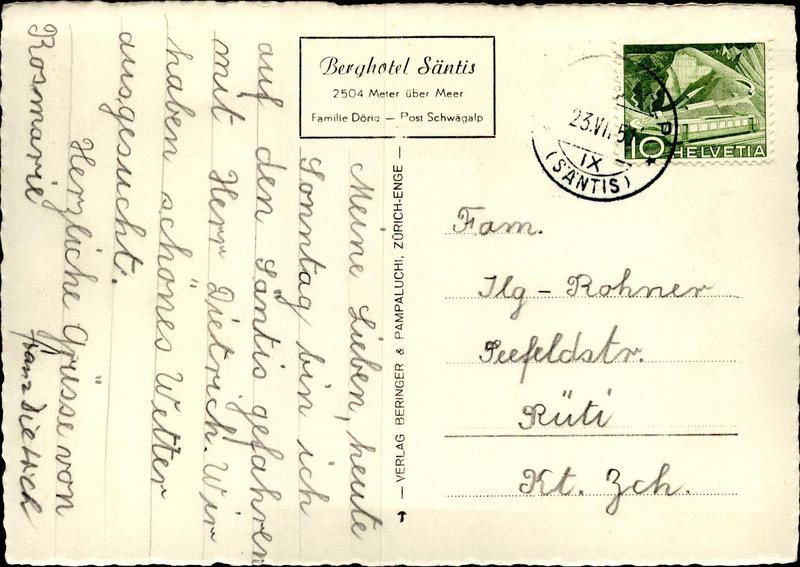 Berghotel Säntis
2504 Meter über Meer
Familie Dörig — Post Schwägalp
23.VI.5
IX
(SÄNTIS)
10 HELVETIA
Meine Lieben, heute
Sonntag bin ich
auf den Säntis gefahren
mit Herr Dietrich. Wir
haben schönes Wetter
ausgesucht.
Herzliche Grüsse von
Rosmarie
Franz Dietrich
— VERLAG BERINGER & PAMPALUCHI, ZÜRICH-ENGE —
Fam.
Ilg - Rohner
Seefeldstr.
Rüti
Kt. Zch.